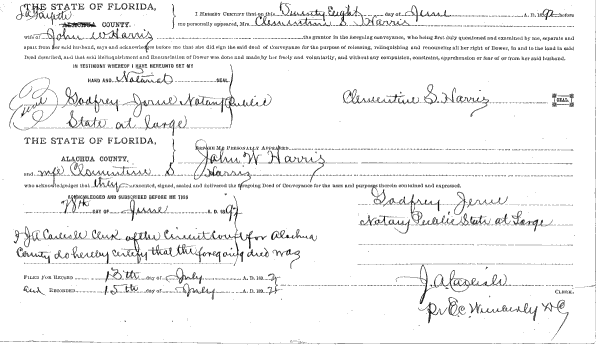 THE STATE OF FLORIDA,
LaFayette
ALACHUA COUNTY.
I HEREBY CERTIFY that on this Twenty Eight day of June A. D. 189 before
me personally appeared, Mrs. Clementine S Harris
wife of John W Harris the grantor in the foregoing conveyance, who being first duly questioned and examined by me, separate and
apart from her said husband, says and acknowledges before me that she did sign the said deed of Conveyance for the purpose of releasing, relinquishing and renouncing all her right of Dower, in and to the land in said
Deed described, and that said Relinquishment and Renunciation of Dower was done and made by her freely and voluntarily, and without any compulsion, constraint, apprehension or fear of or from her said husband.
IN TESTIMONY WHEREOF I HAVE HEREUNTO SET MY
HAND AND Notarial SEAL
Seal Godfrey Jerue Notary Public
State at Large
Clementine S. Harris SEAL
THE STATE OF FLORIDA,
ALACHUA COUNTY.
BEFORE ME PERSONALLY APPEARED
John W Harris
and wife Clementine S Harris
who acknowledges that they executed, signed, sealed and delivered the foregoing Deed of Conveyance for the uses and purposes therein contained and expressed.
ACKNOWLEDGED AND SUBSCRIBED BEFORE ME THIS
28th DAY OF June A. D. 1897
Godfrey Jerue
Notary Public State at Large
I J A Carlisle Clerk of the Circuit Court for Alachua
County do hereby certify that the foregoing deed was
FILED FOR RECORD 13th day of July A. D. 189 7
and RECORDED 15th day of July A. D. 189 7
J. A. Carlisle CLERK.
Pr E. C. Wimberly D C